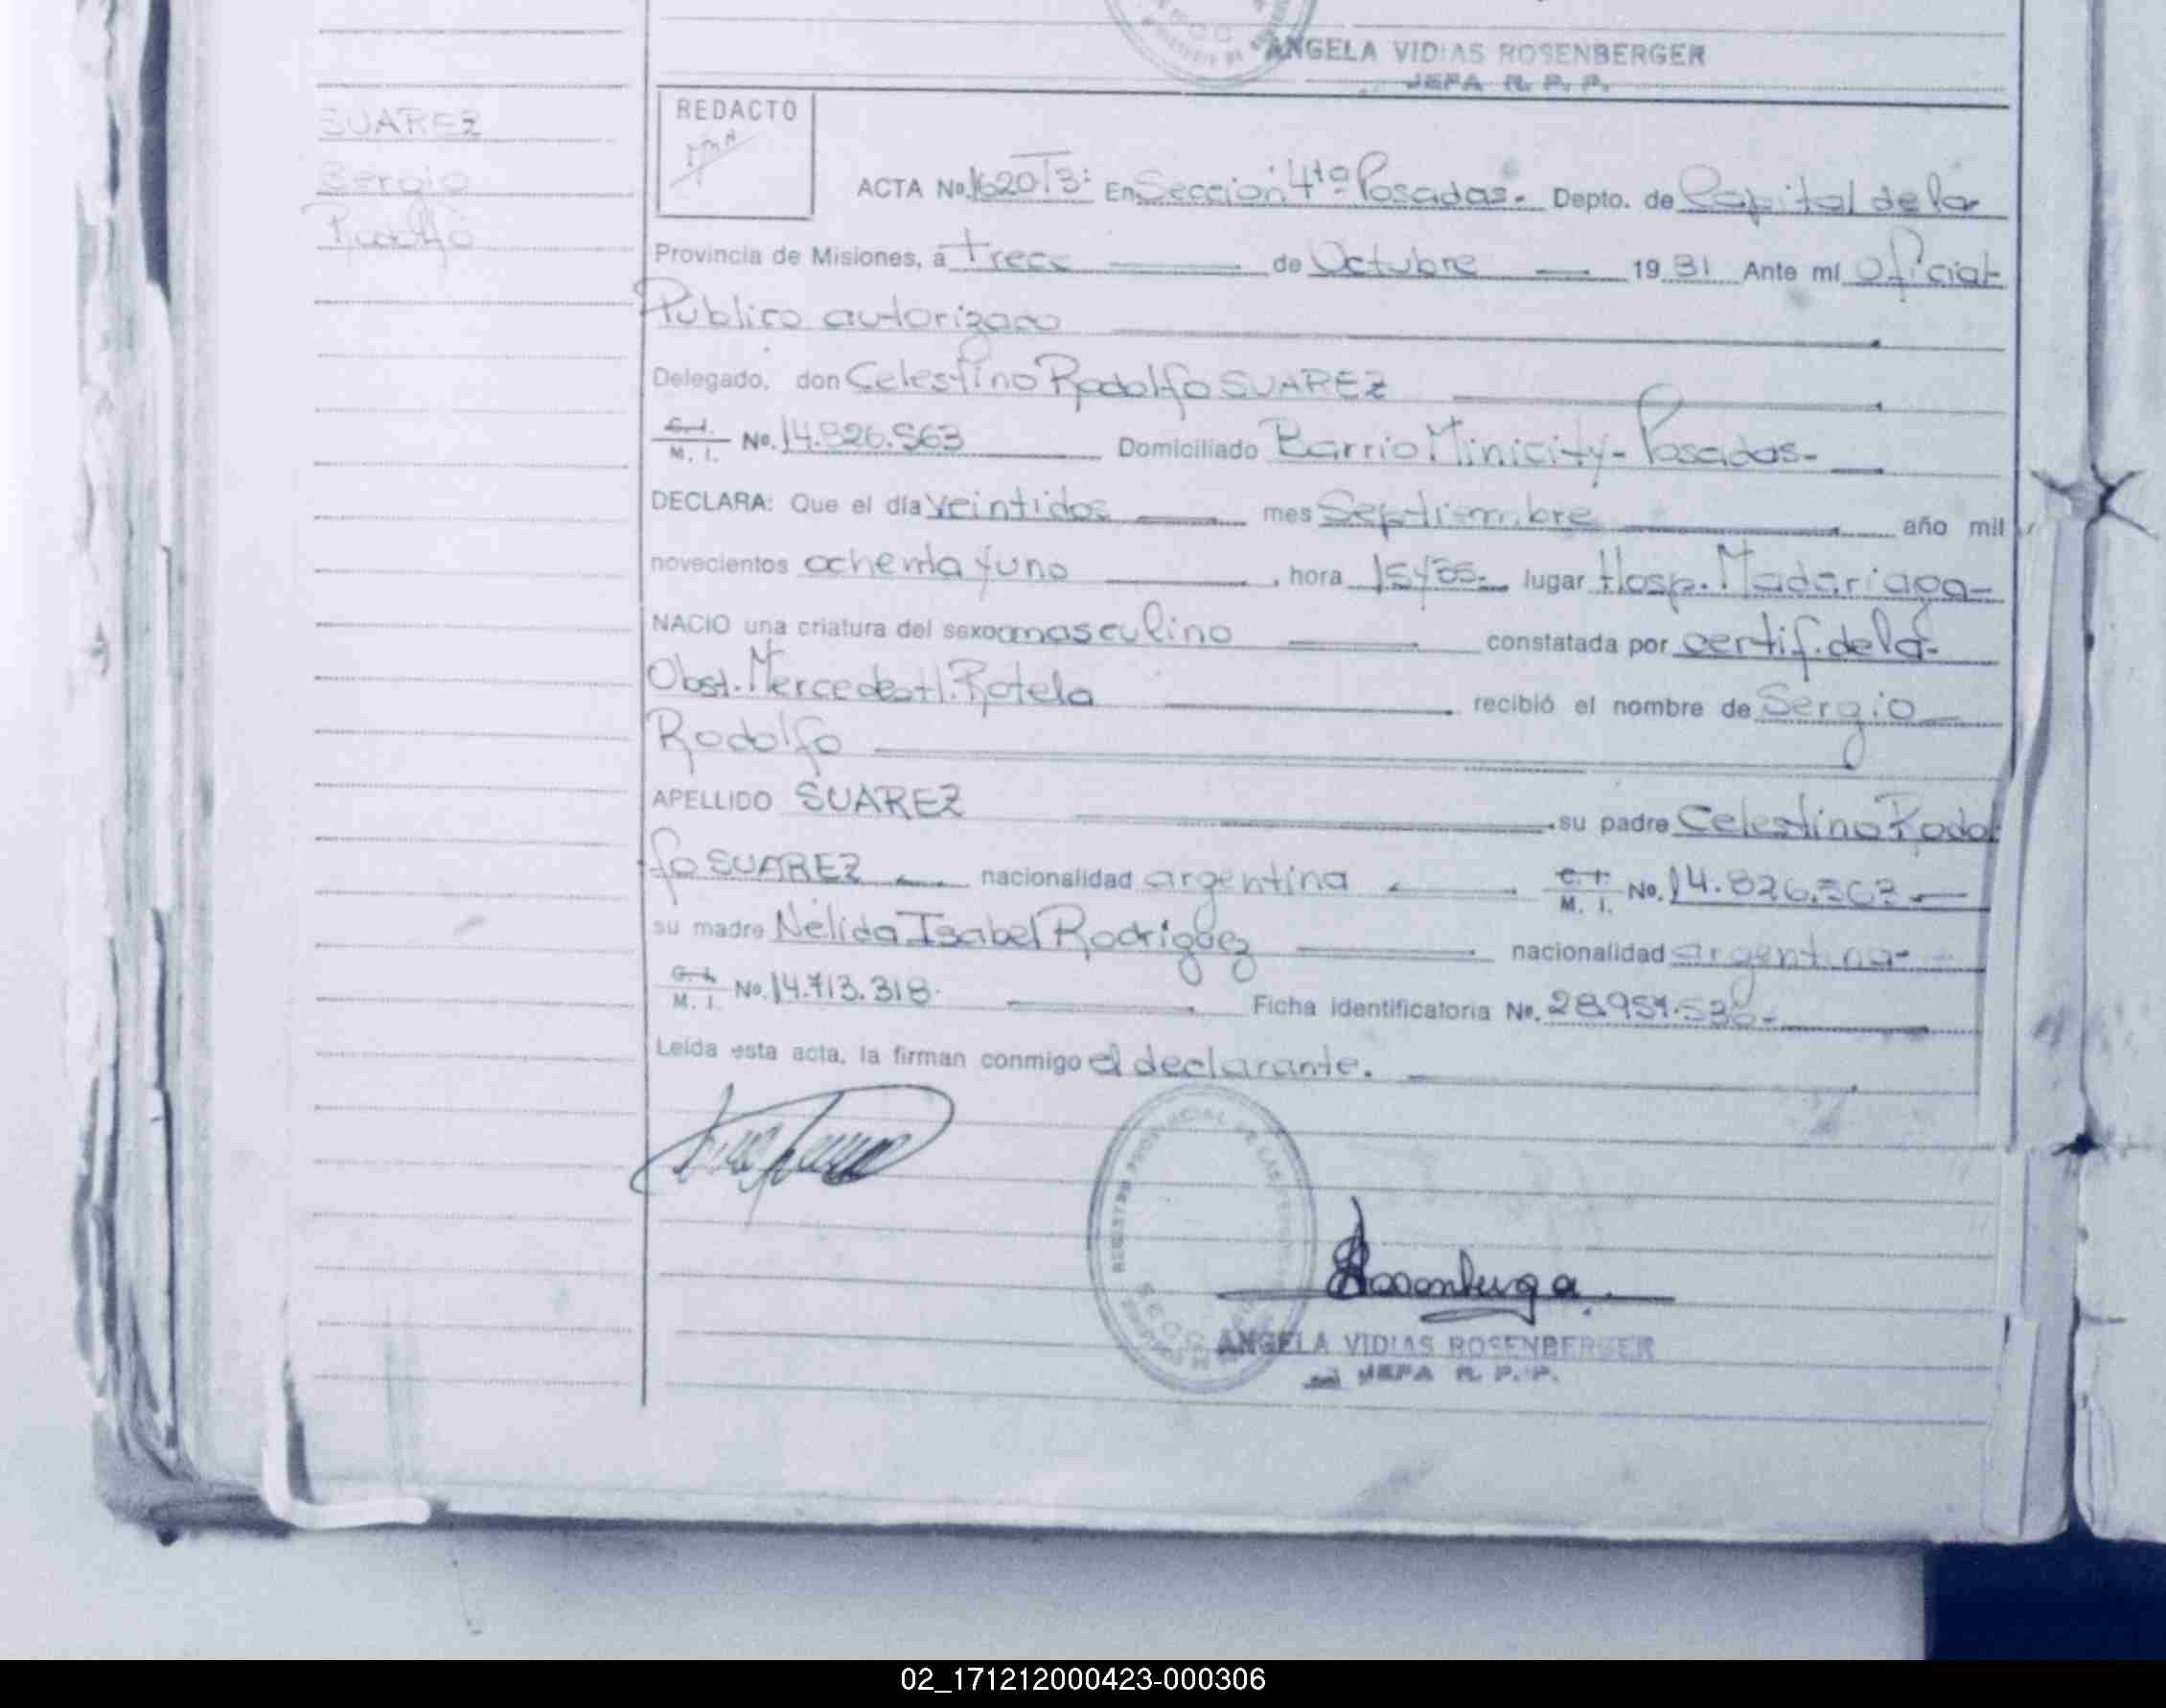 ANGELA VIDIAS ROSENBERGER
JEFA R. P. P.
SUAREZ
Sergio
Rodolfo
REDACTO
ACTA No. 1620 T3: En Sección 4ta Posadas.- Depto. de Capital de la
Provincia de Misiones, a trece de Octubre 1981 Ante mí Oficial
Publico autorizado
Delegado, don Celestino Rodolfo SUAREZ
C.I. M. I. No. 14.826.563 Domiciliado Barrio Minicity-Posadas-
DECLARA: Que el día veintidos mes Septiembre año mil
novecientos ochenta y uno, hora lugar Hosp. Madariaga-
NACIO una criatura del sexo masculino constatada por certif. de la-
Obst. Mercedes Rotela recibió el nombre de Sergio
Rodolfo
APELLIDO SUAREZ su padre Celestino Rodol
fo SUAREZ nacionalidad argentina C.I. M. I. No. 14.826.563
su madre Nélida Isabel Rodriguez nacionalidad argentina-
C.I. M. I. No. 14.713.318. Ficha identificatoria No. 28.951.536-
Leída esta acta, la firman conmigo el declarante.
REGISTRO PROVINCIAL DE LAS
ANGELA VIDIAS ROSENBERGER
JEFA R. P. P.
02_171212000423-000306